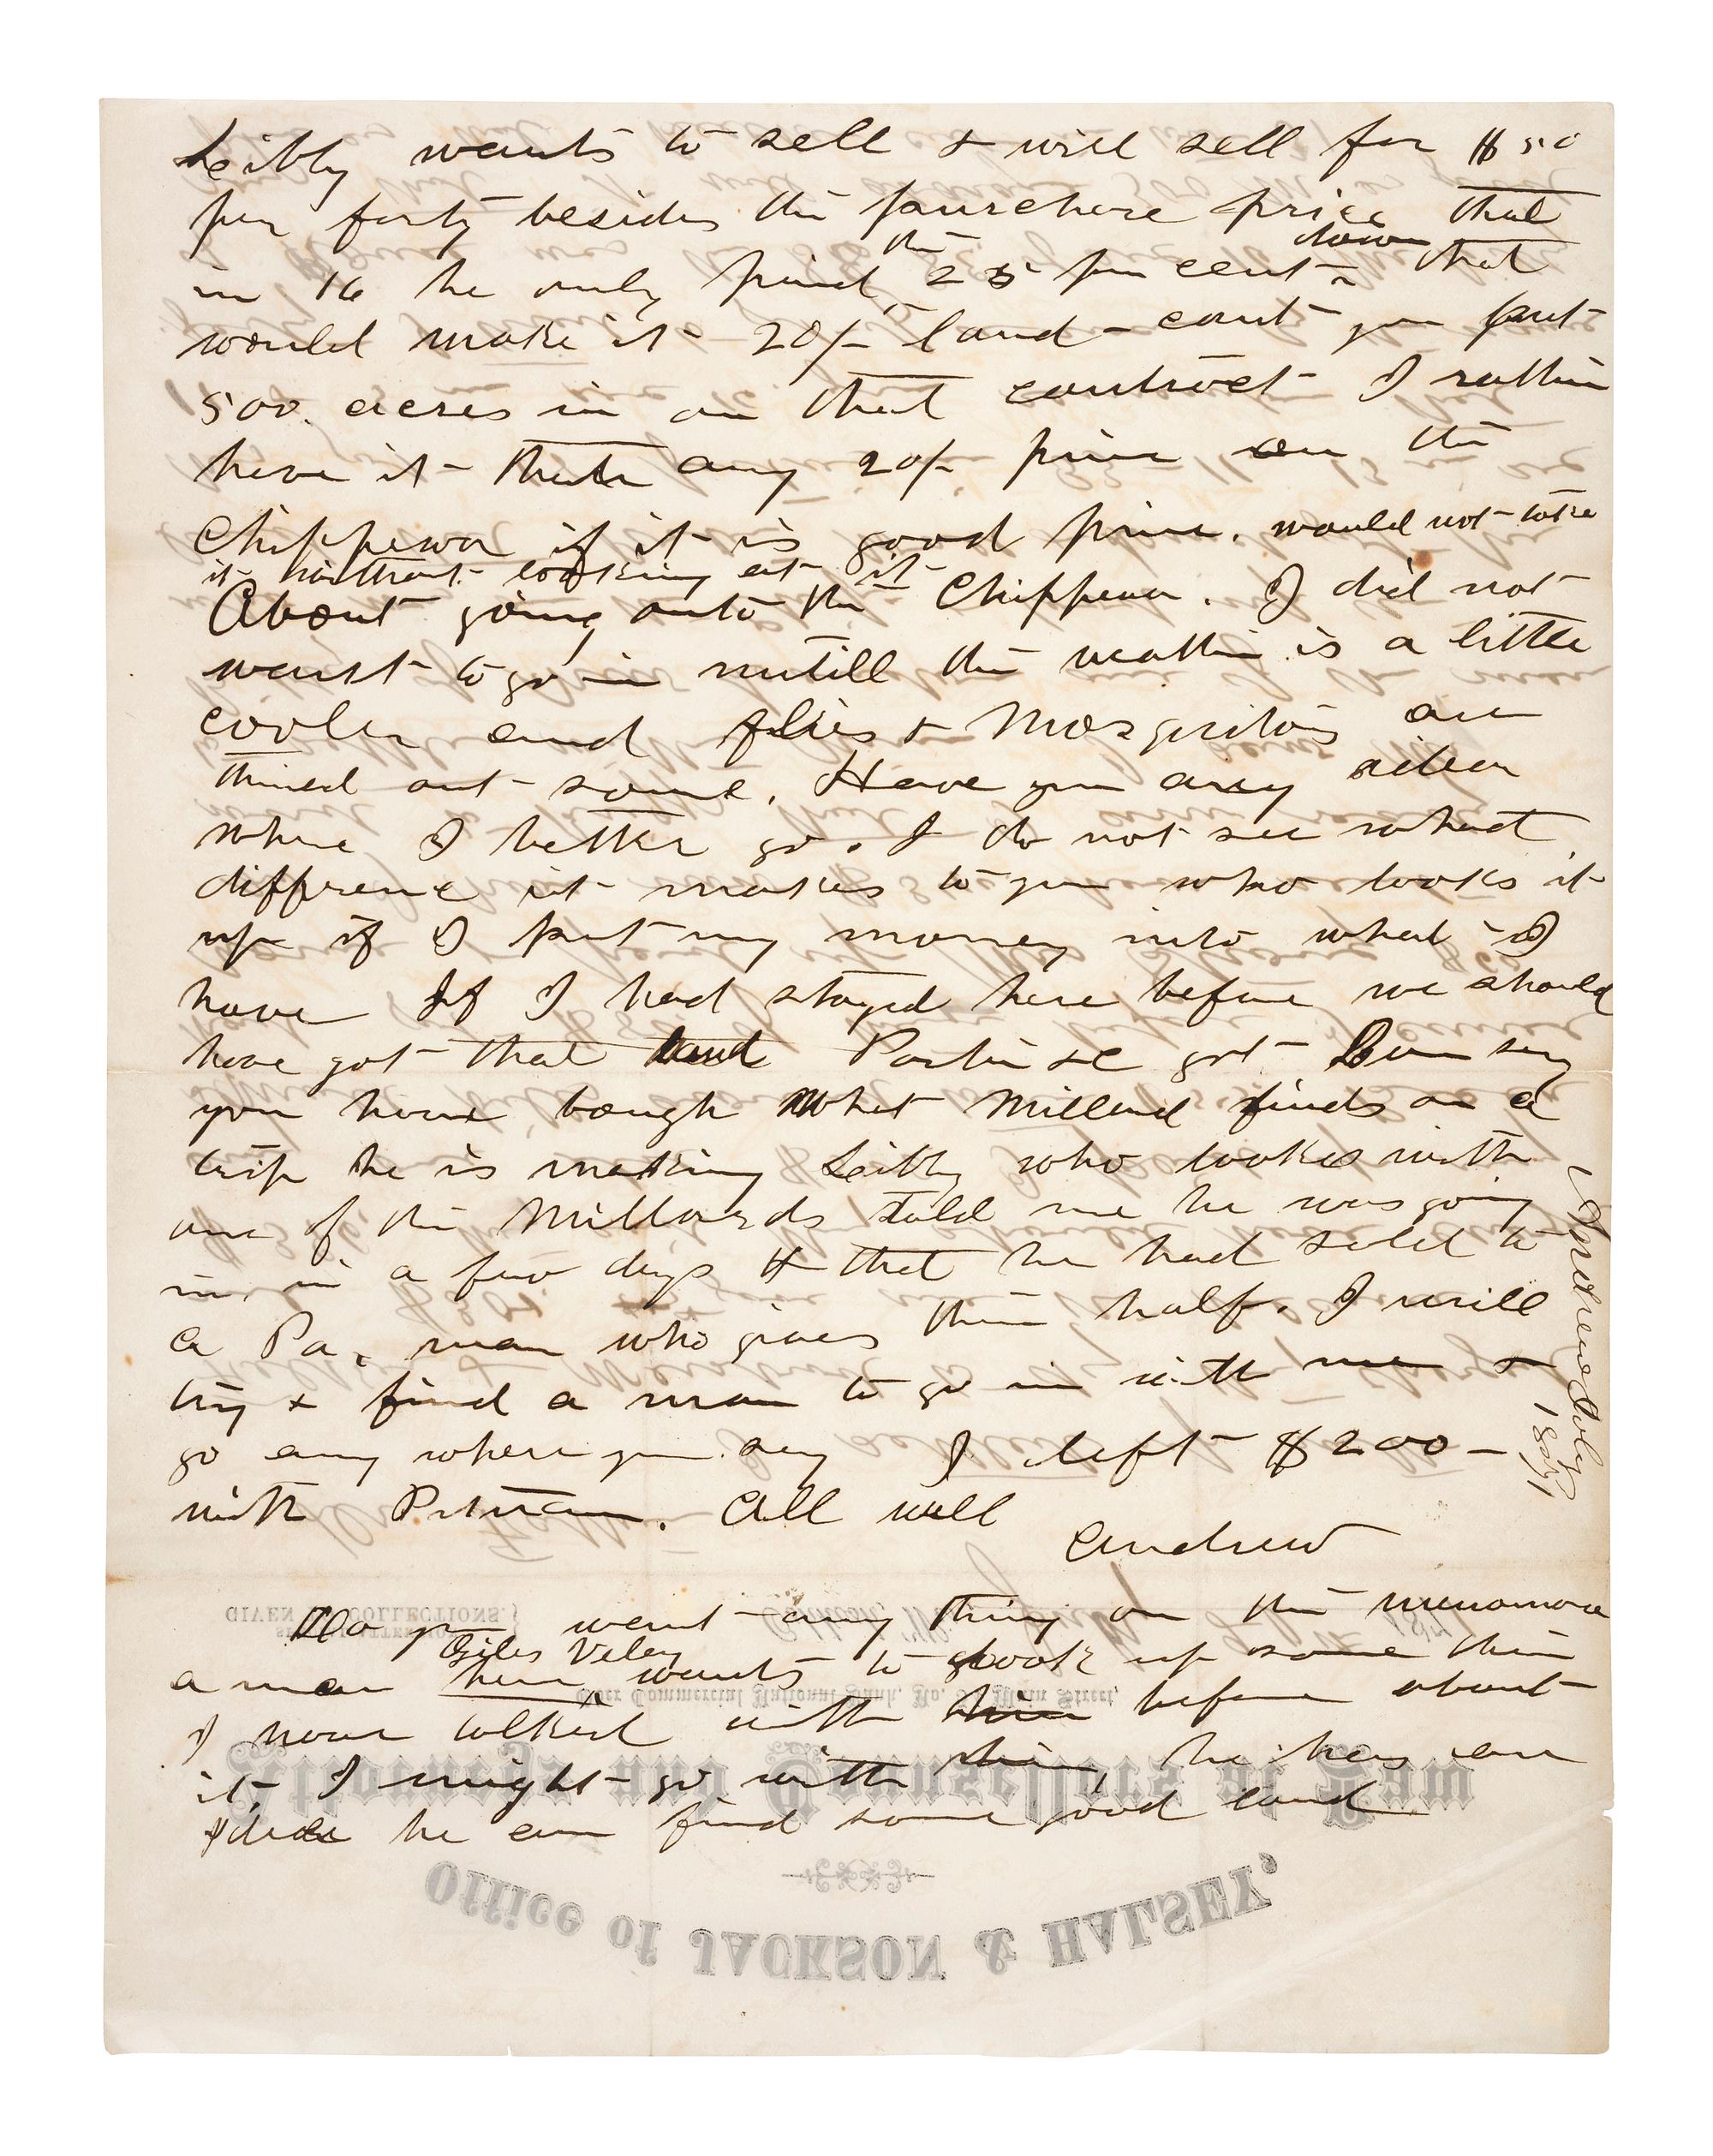 Leibly wants to sell & will sell for $50
per forty besides the purchase price that
in 16 he only paid the 25 per cent down that
would make it 20/- land - cant you put
500. acres in on that contract I rather
have it than any 20/- pine on the
Chippewa if it is good pine. would not take
it without looking at it
About going onto the Chippewa. I did not
want to go in untill the weather is a little
cooler and flies & Mosquitoes are
thined out some. Have you any idea
where I better go. I do not see what
difference it makes to you who looks it
up if I put my money into what I
have If I had stayed here before we should
have got that land got say
you have bough what Millard finds on a
trip he is making Leibly who looks with
one of the Millards told me he was going
in in a few days & that he had sold to
a Pa. man who gives them half. I will
try & find a man to go in with me &
go any where you say I left $200 -
with Putnam. All well
Andrew
Do you want any thing on the menomonee
a man here Giles Veley wants to look up some there
I never talked with him before about
it I might go with him, he has an
idea he can find some good land
Andrew July
1871
GIVEN COLLECTIONS.
Over Commercial National Bank, No. Main Street,
Attorneys and Counsellors at Law
Office of JACKSON & HALSEY,